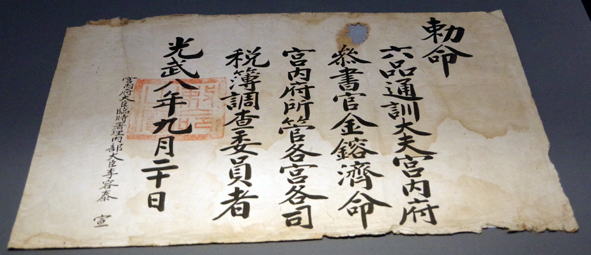 勅命
六品通訓大夫宮內府
叅書官金鎔濟命
宮內府所管各宮各司
稅簿調查委員者
光武八年九月二十日
宮內府大臣臨時署理內部大臣李容泰 宣